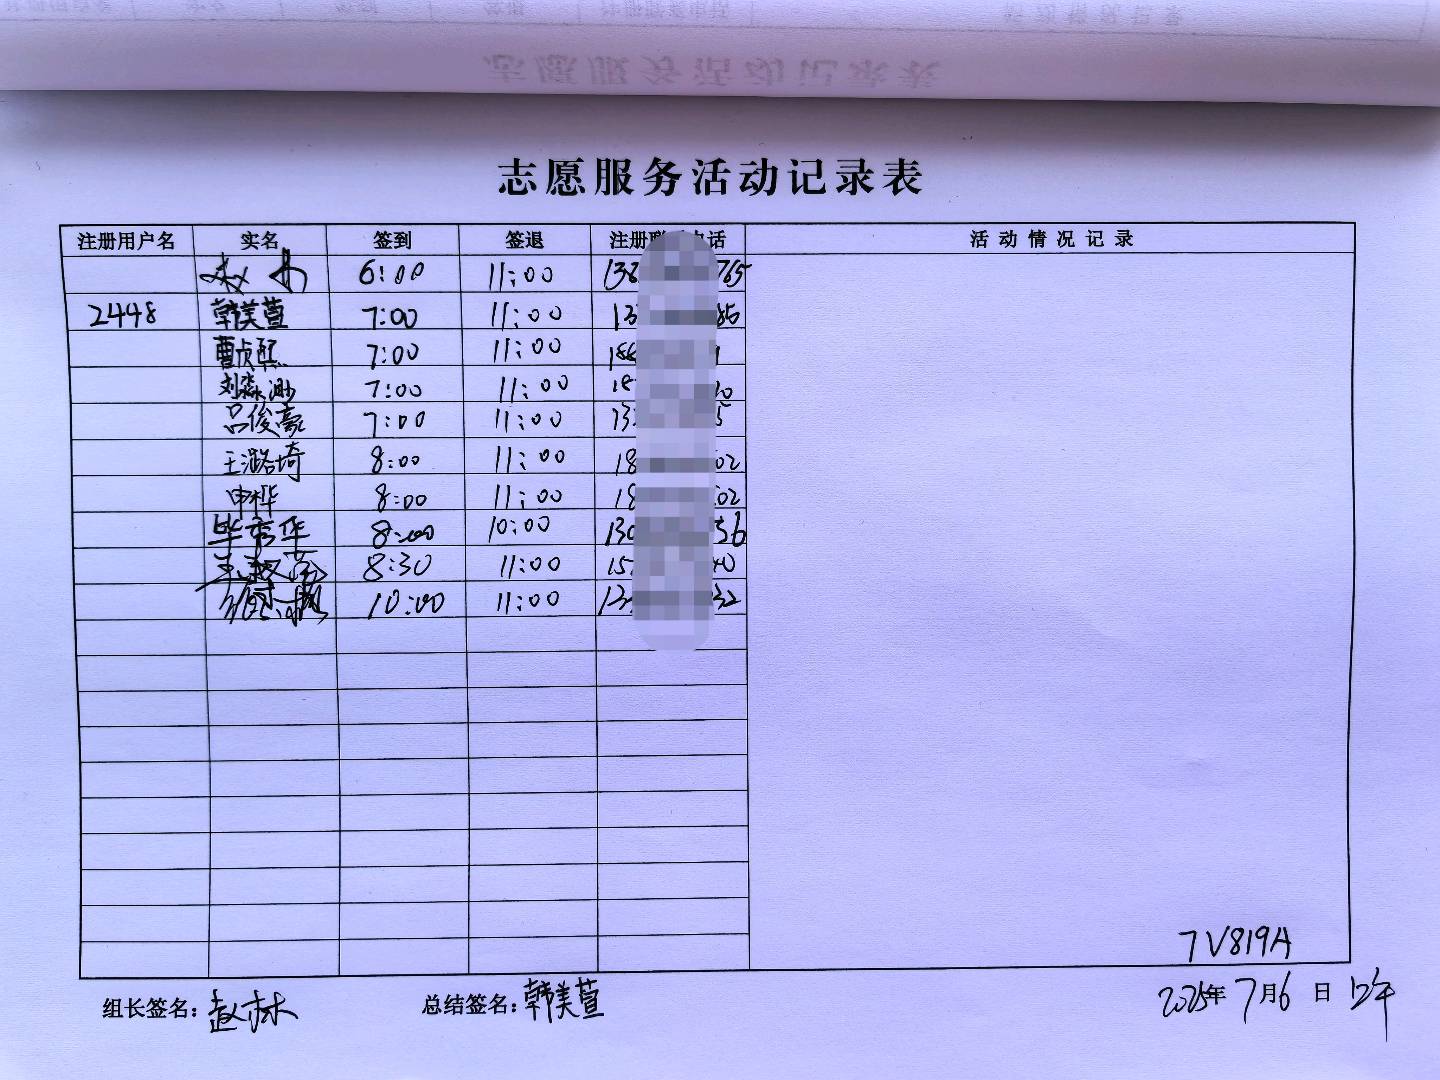 志愿服务活动记录表
注册用户名 实名 签到 签退 注册联 电话 活动情况记录
赵 6:00 11:00 138 765
2448 韩美萱 7:00 11:00 13 85
曹贞熙 7:00 11:00 188 1
刘淼渺 7:00 11:00 18 10
吕俊豪 7:00 11:00 13 5
王潞琦 8:00 11:00 18 02
申桦 8:00 11:00 18 02
毕秀华 8:00 10:00 130 56
8:30 11:00 15 40
10:00 11:00 13 32
7V819A
组长签名: 赵林 总结签名: 韩美萱 2025年 7月6日